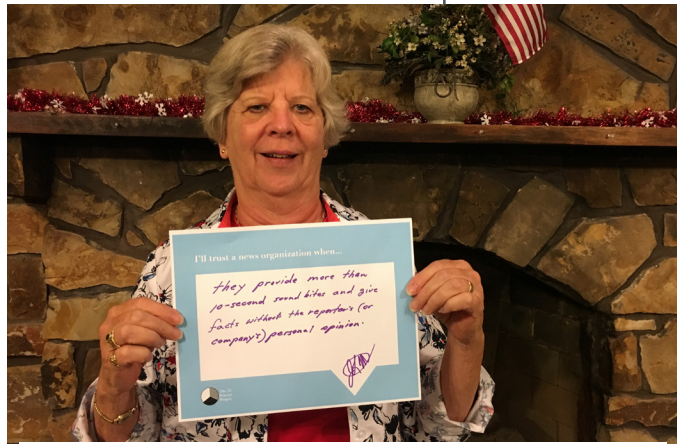 I'll trust a news organization when...
they provide more than
10-second sound bites and give
facts without the reporter's (or
company's) personal opinion.